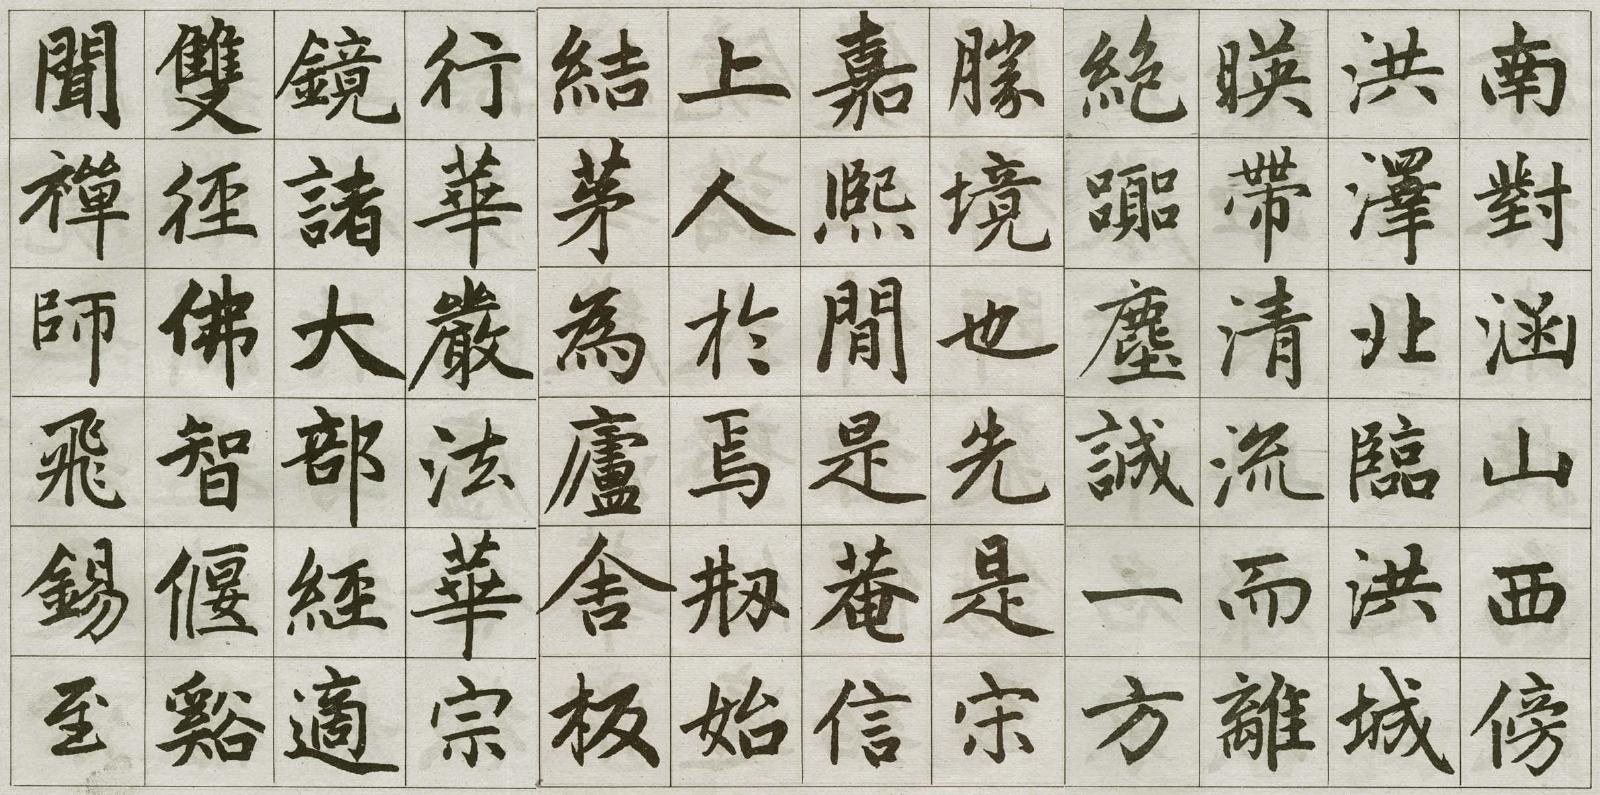 南對涵山西傍
洪澤北臨洪城
暎帶清流而離
絕躧塵誠一方
勝境也先是宋
嘉熙間是菴信
上人於焉剏始
結茅為廬舍板
行華嚴法華宗
鏡諸大部經適
雙徑佛智偃谿
聞禪師飛錫至